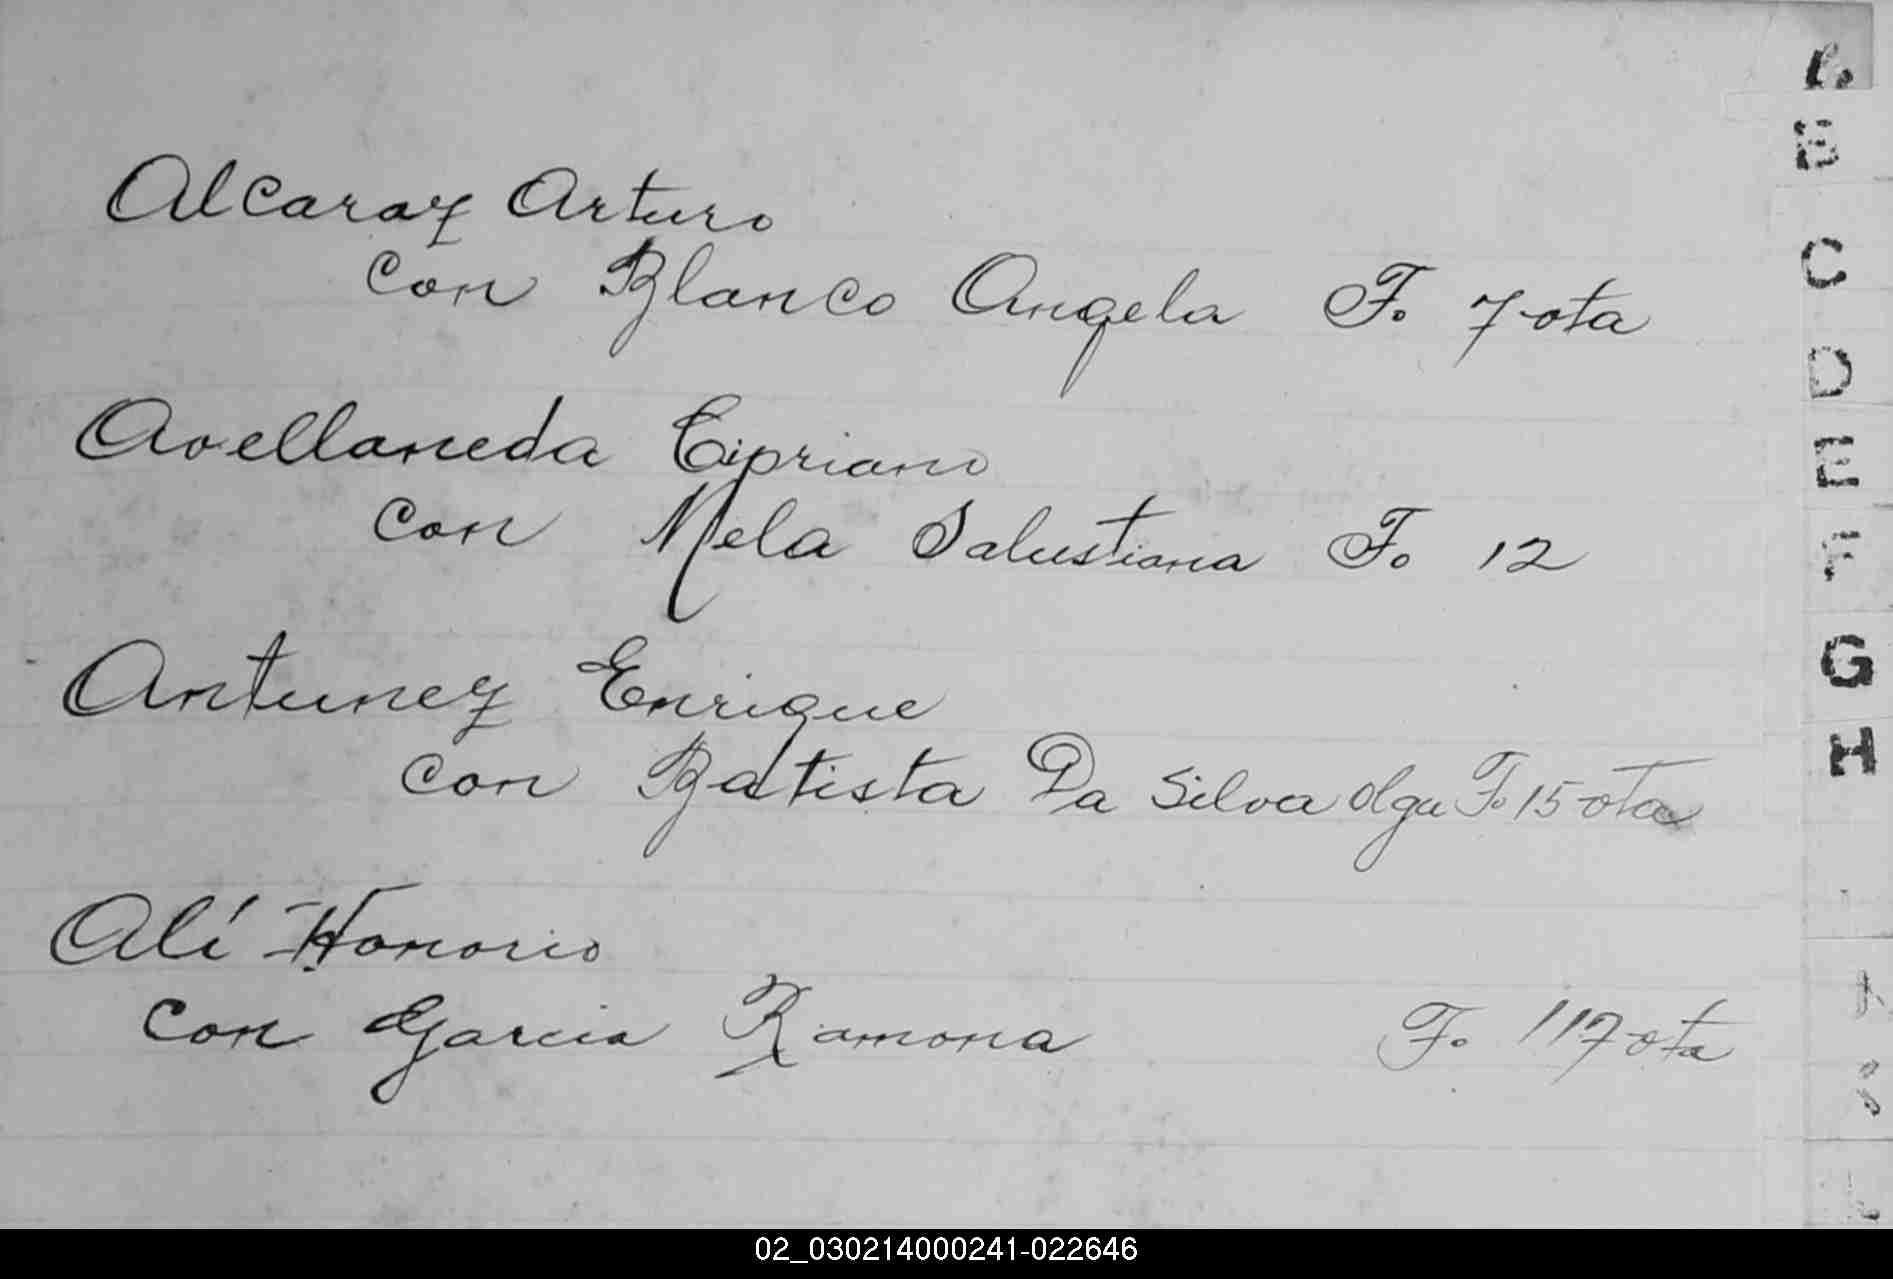 Alcaraz Arturo
con Blanco Angela Fo 7 ota
Avellaneda Cipriano
con Mela Salustiana Fo 12
Antunez Enrique
con Batista Da Silva Olga Fo 15 ota
Alí Honorio
con Garcia Ramona Fo 117 ota
B
C
D
E
F
G
H
02_030214000241-022646